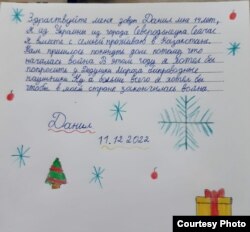 Здравствуйте меня зовут Данил мне 14 лет,
Я из Украины из города Северодонецка Сейчас
я вместе с семьёй проживаю в Казахстане.
Нам пришлось покинуть дом потому что
началась война В этом году я хотел бы
попросить у Дедушки Мороза беспроводные
наушники Ну а больше всего я хотел бы
чтобы в моей стране закончилась война.
Данил
11.12.2022
Courtesy Photo